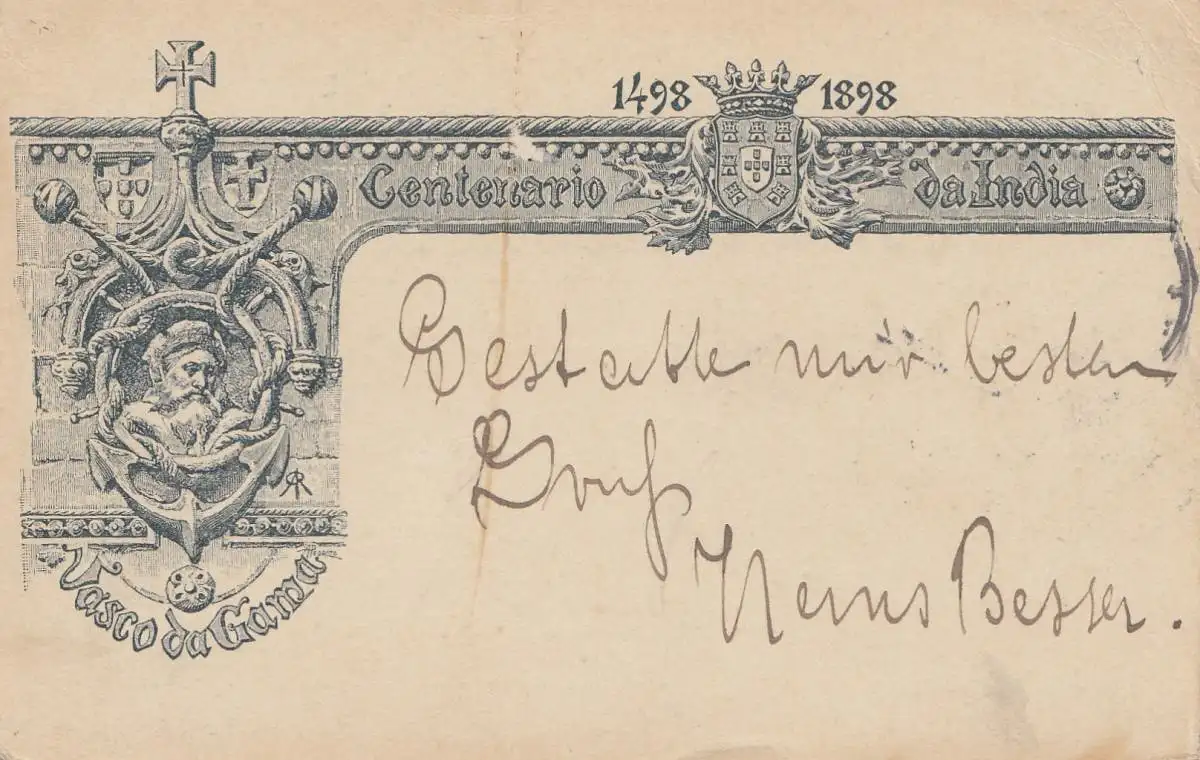 1498 1898
Centenario da India
Vasco da Gama
Gestatte mir besten
Gruß
Hans Besser.